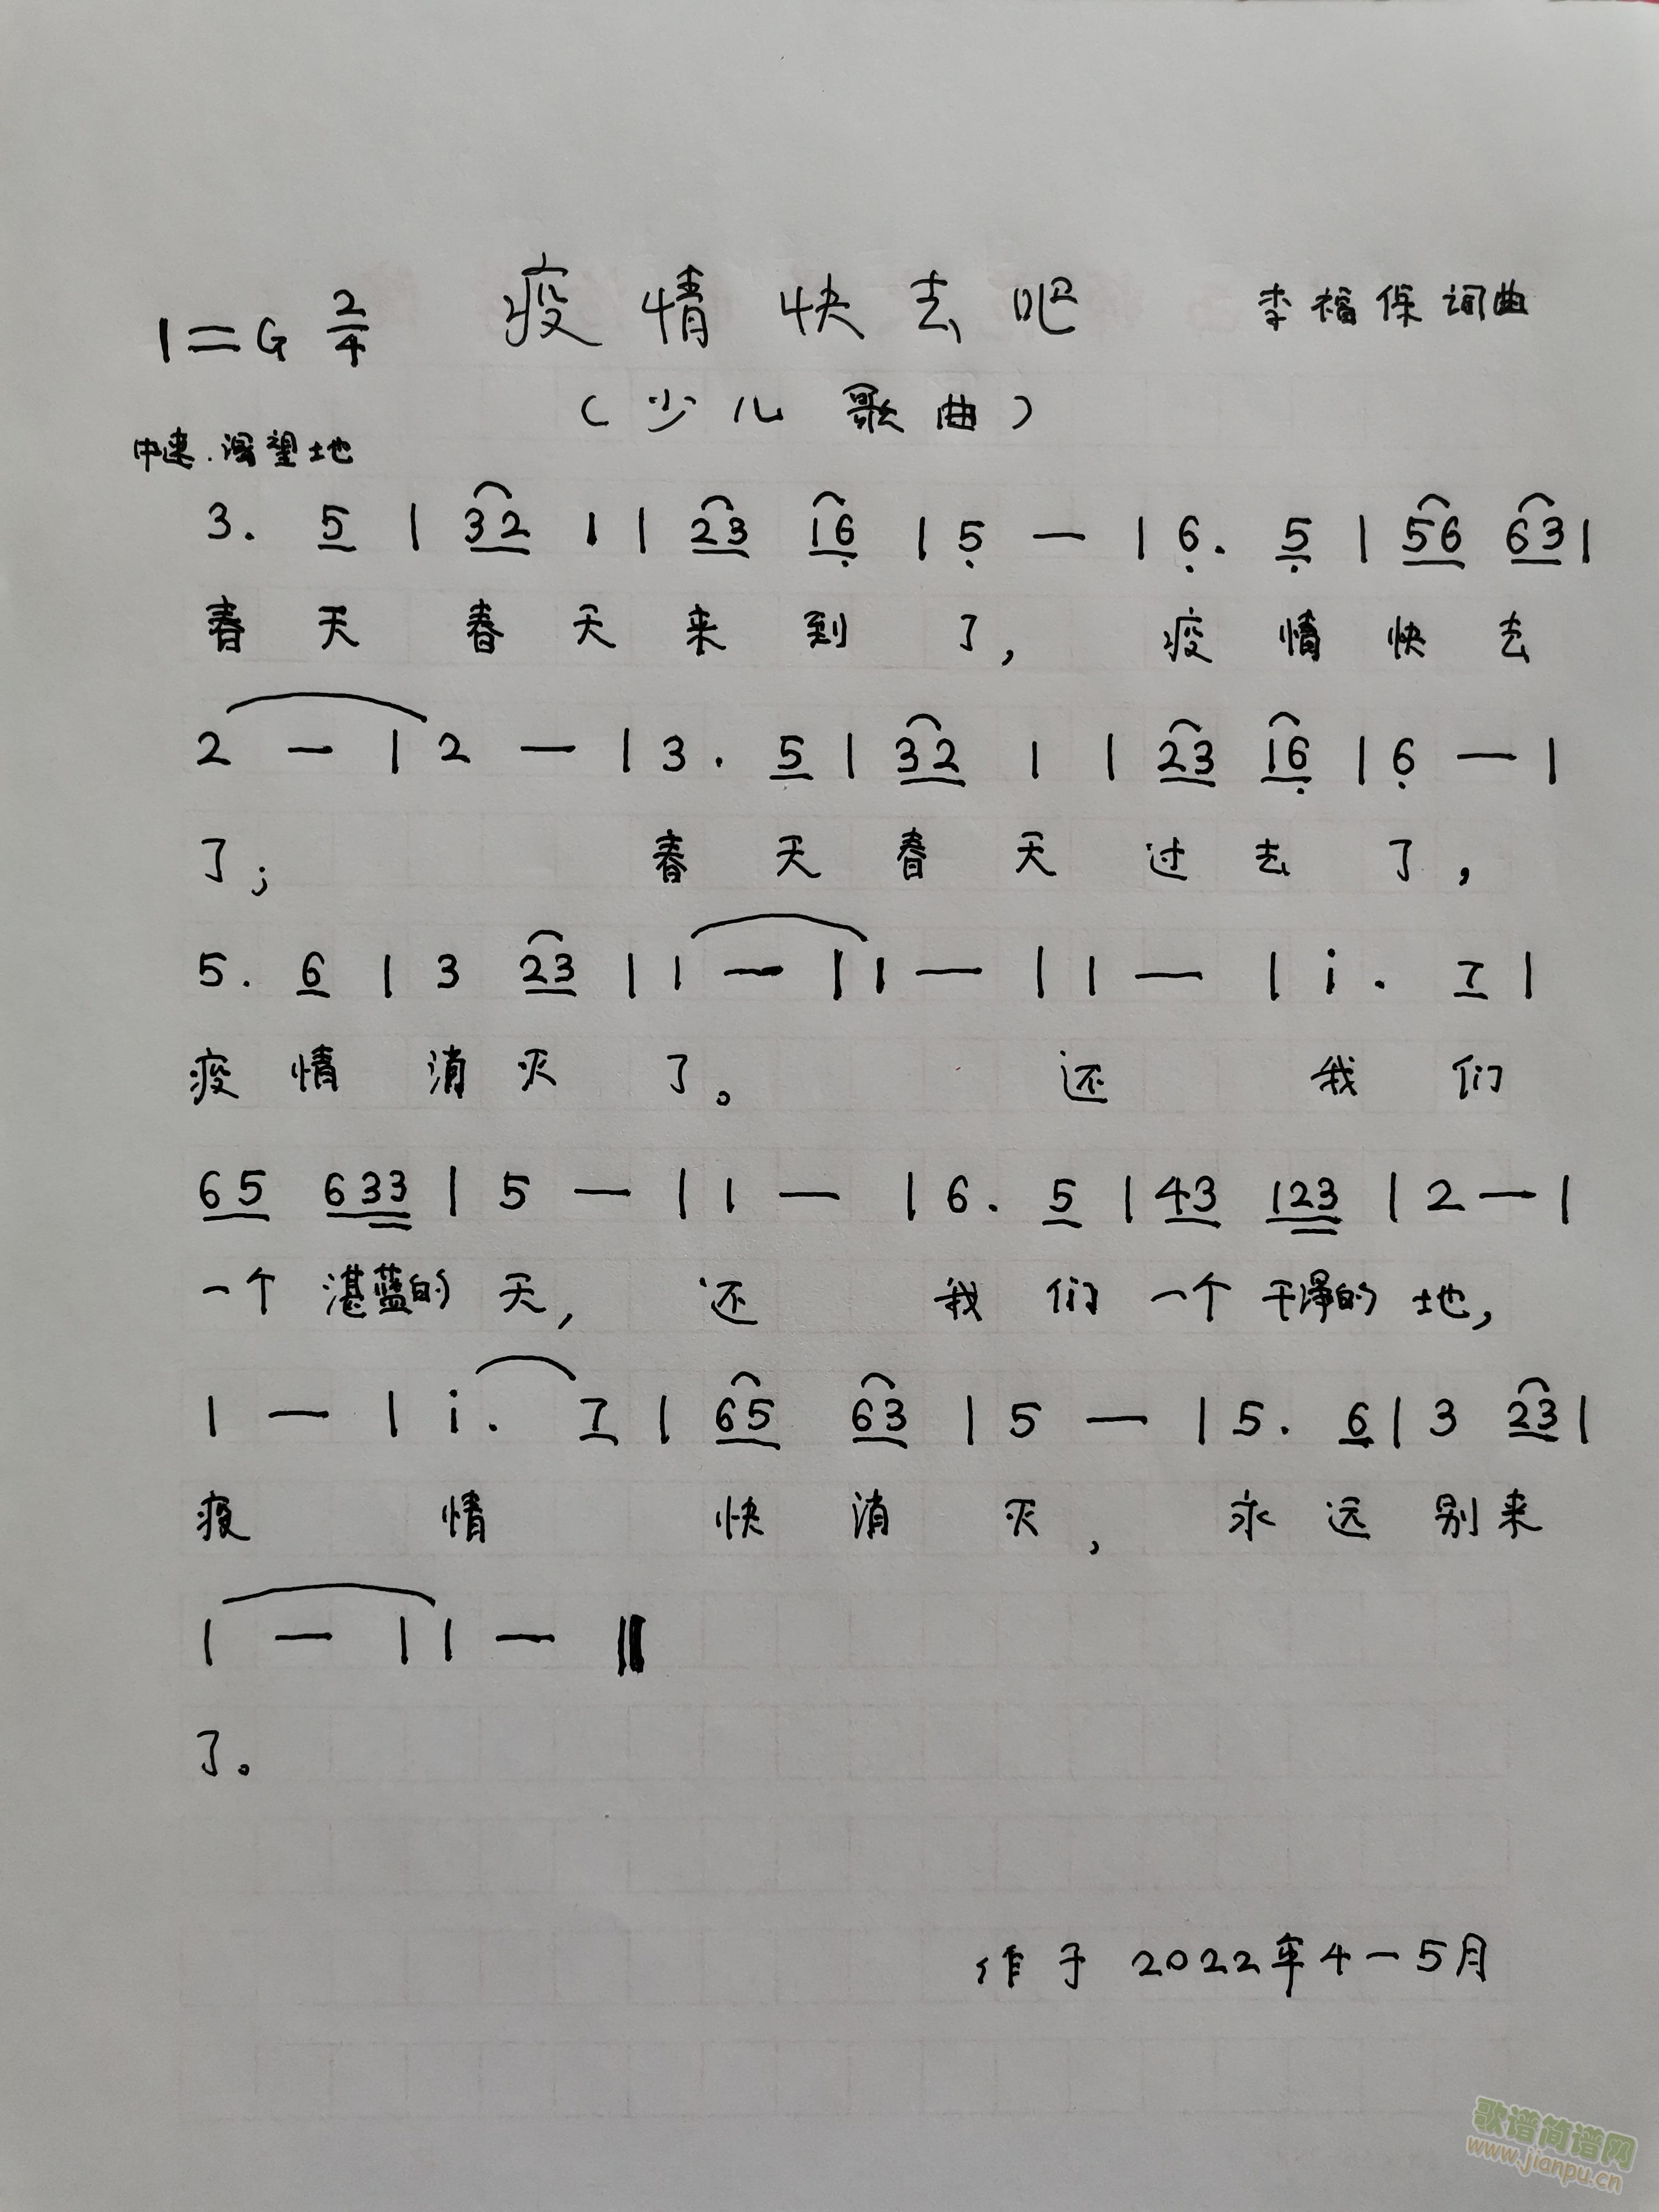 1=G 2/4 疫情快去吧 李福保词曲
(少儿歌曲)
中速.渴望地
3. 5 | 32 1 | 23 16 | 5 — | 6. 5 | 56 63 |
春天 春天来到了, 疫情快去
2 — | 2 — | 3. 5 | 32 1 | 23 16 | 6 — |
了; 春天春天过去了,
5. 6 | 3 23 | 1 — | 1 — | 1 — | i. 7 |
疫情消灭了。 还我们
65 633 | 5 — | 1 — | 6. 5 | 43 123 | 2 — |
一个湛蓝的天, 还我们一个干净的地,
1 — | i. 7 | 65 63 | 5 — | 5. 6 | 3 23 |
疫情快消灭, 永远别来
1 — | 1 — ‖
了。
作于2022年4—5月
歌谱简谱网
www.jianpu.cn